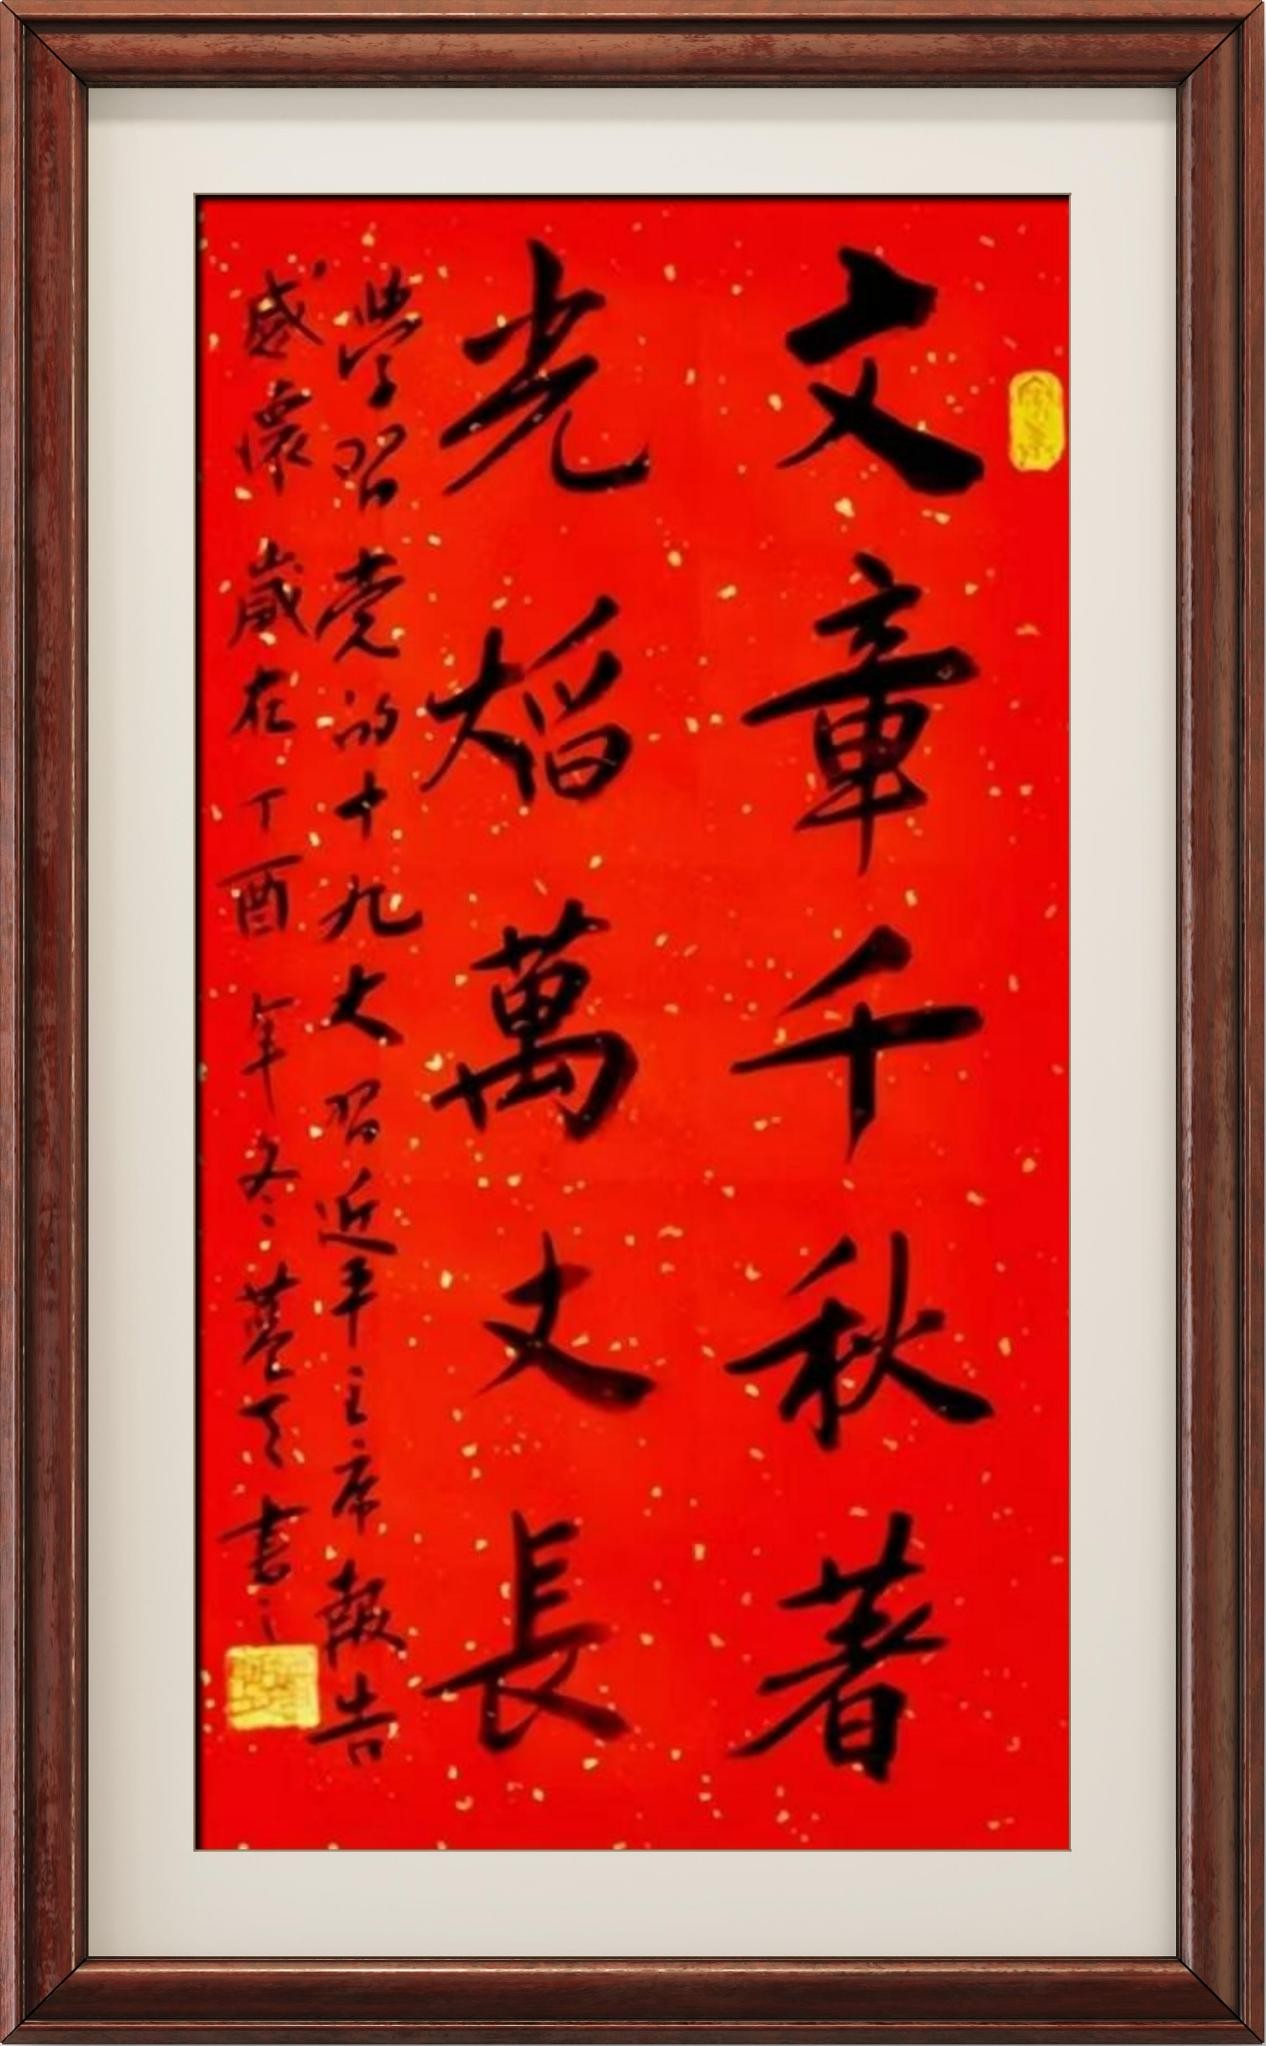 文章千秋著
光焰萬丈長
學習党的十九大習近平主席報告
感懷歲在丁酉年冬書